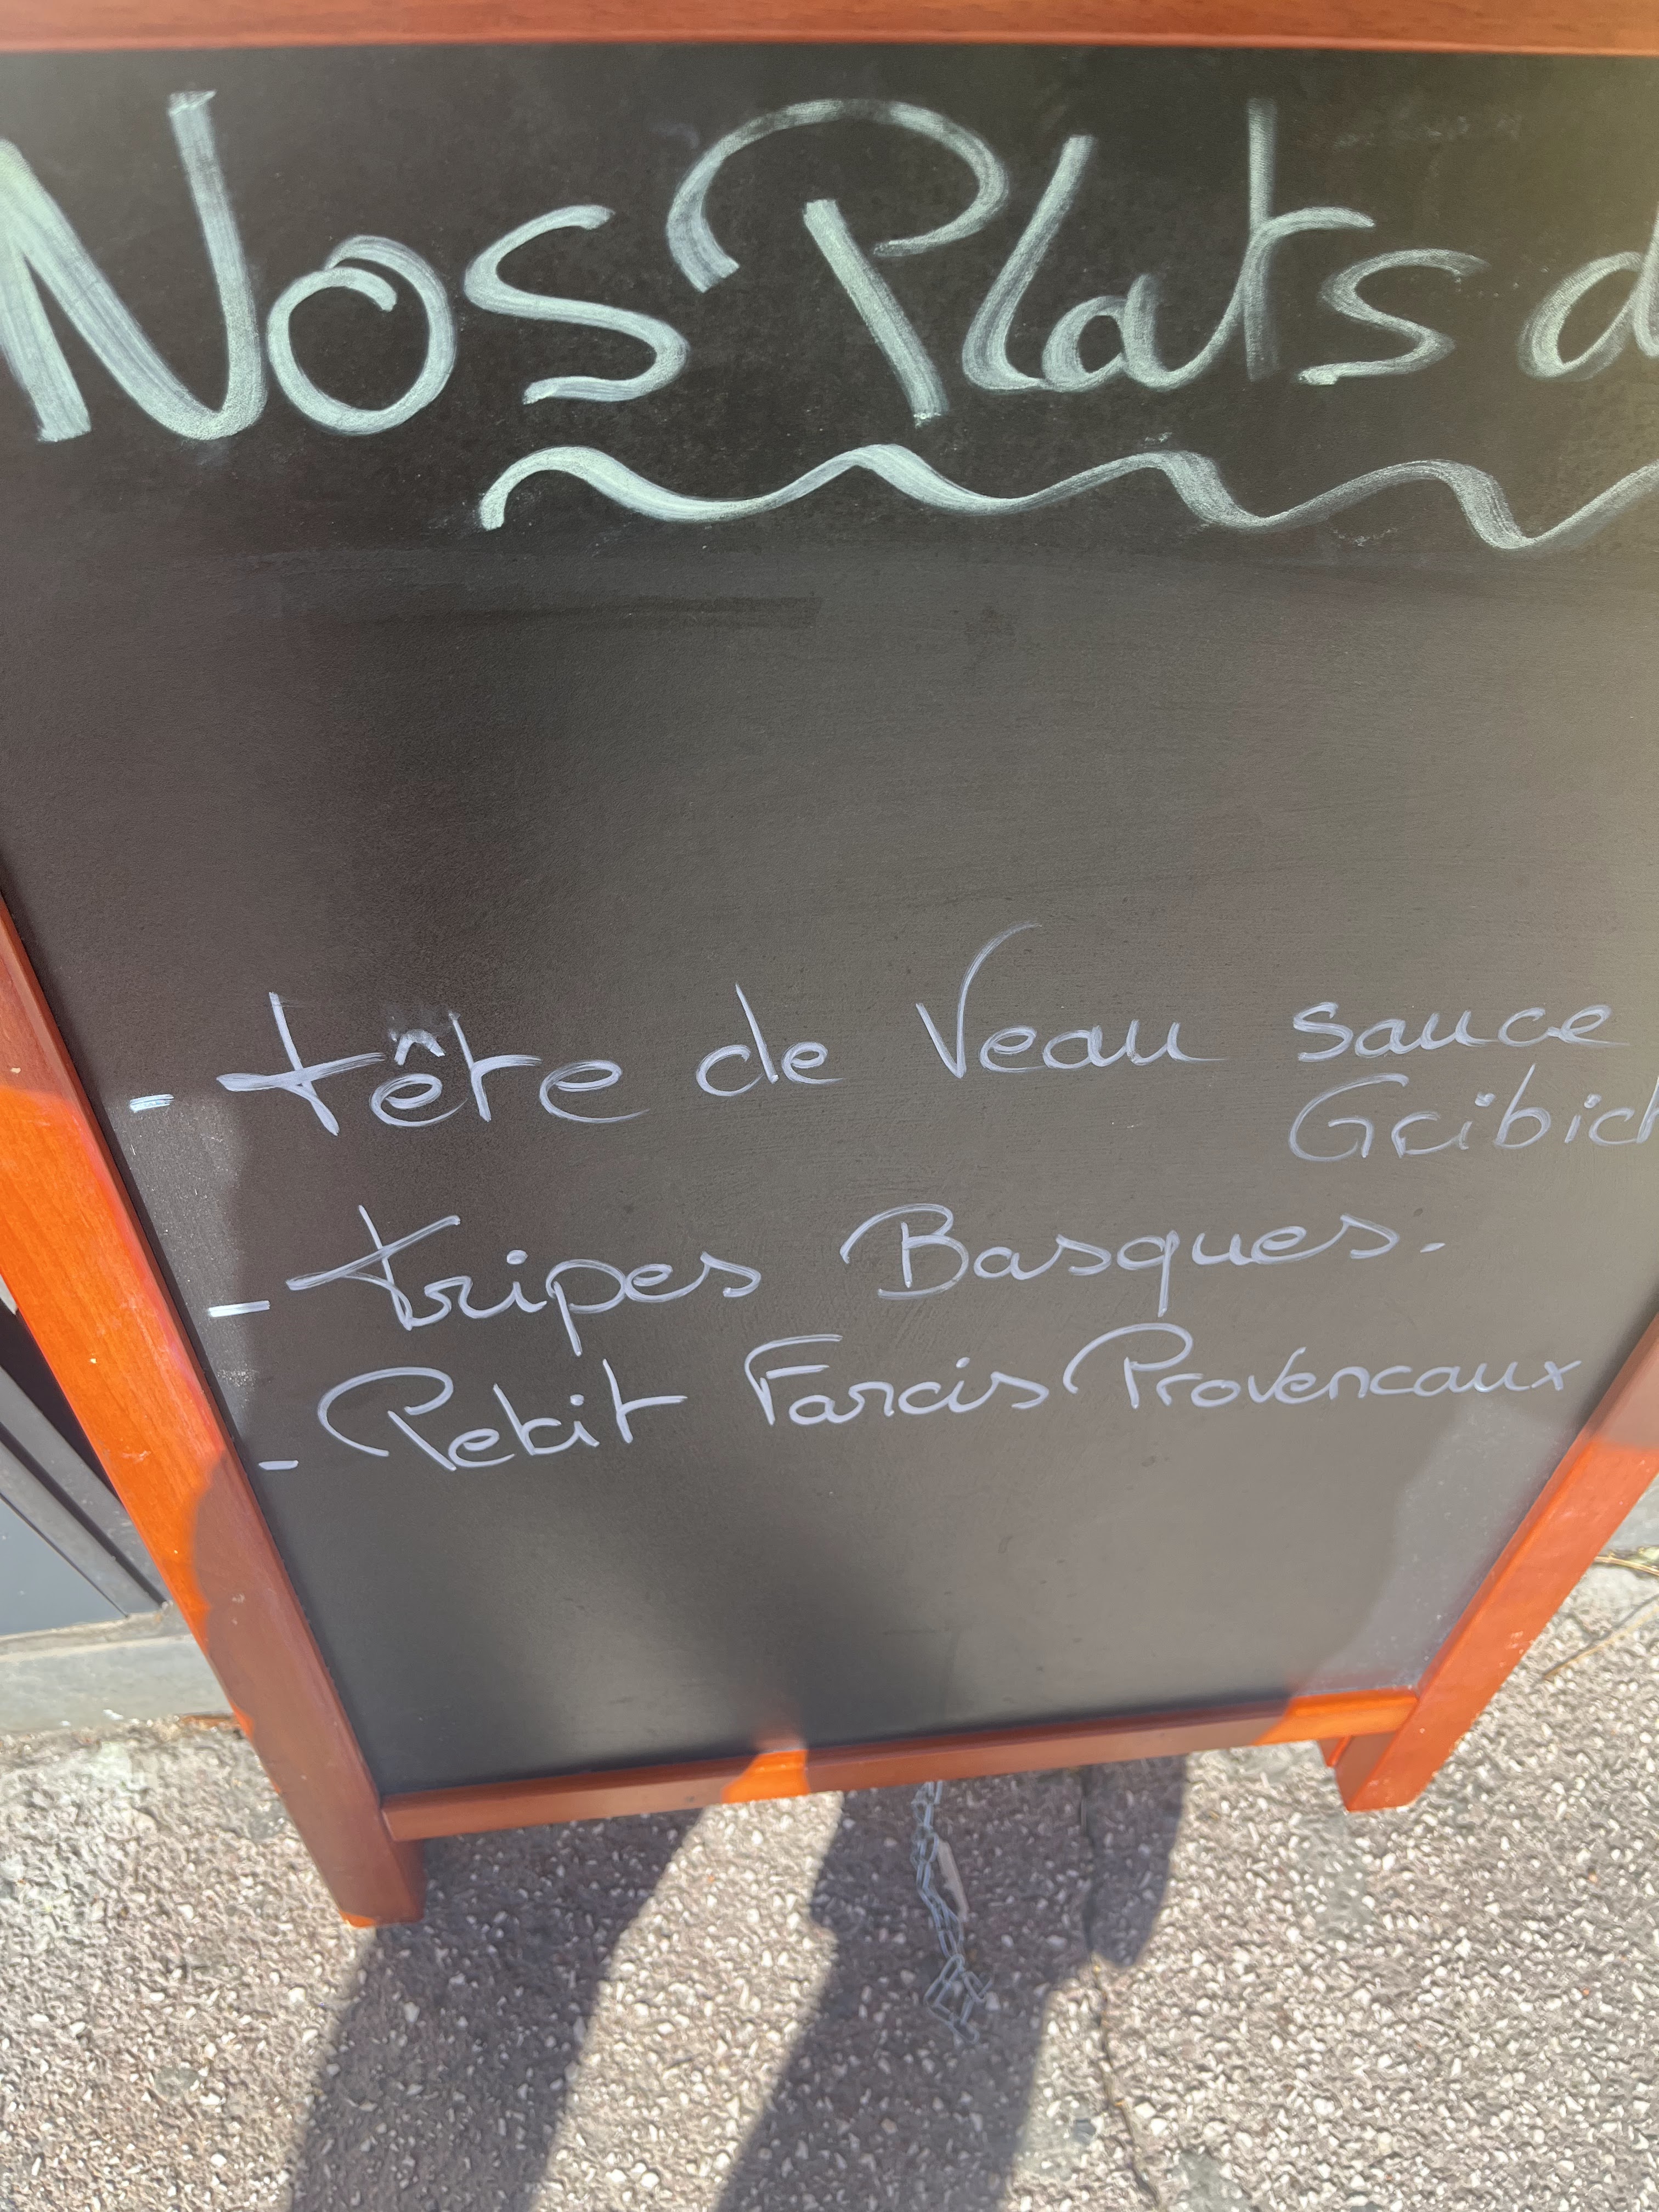 Nos Plats d
- tête de Veau sauce
Gribich
- tripes Basques.
- Petit Farcis Provencaux